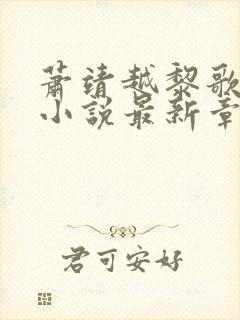 萧靖越黎歌
小说最新章
君可安好